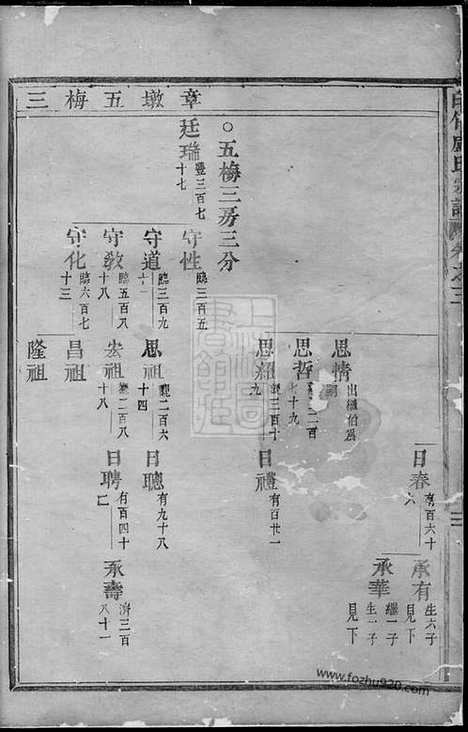 章墩五梅三
○五梅三房三分
廷瑞 豐三百七十七
守性 臨三百五
守道 臨三百九十一
守教 臨五百八十八
守化 臨六百七十三
思情 出繼伯為
思哲
思紹
思祖 龍二百六十四
宏祖 二百八十八
昌祖
隆祖
日春 有百六十六
日禮 有百廿一
日聰 有九十八
日聘 有百四十七
承有 生六子見下
承華 繼一子生一子見下
承壽 濟三百八十一
www.fozhu920.com